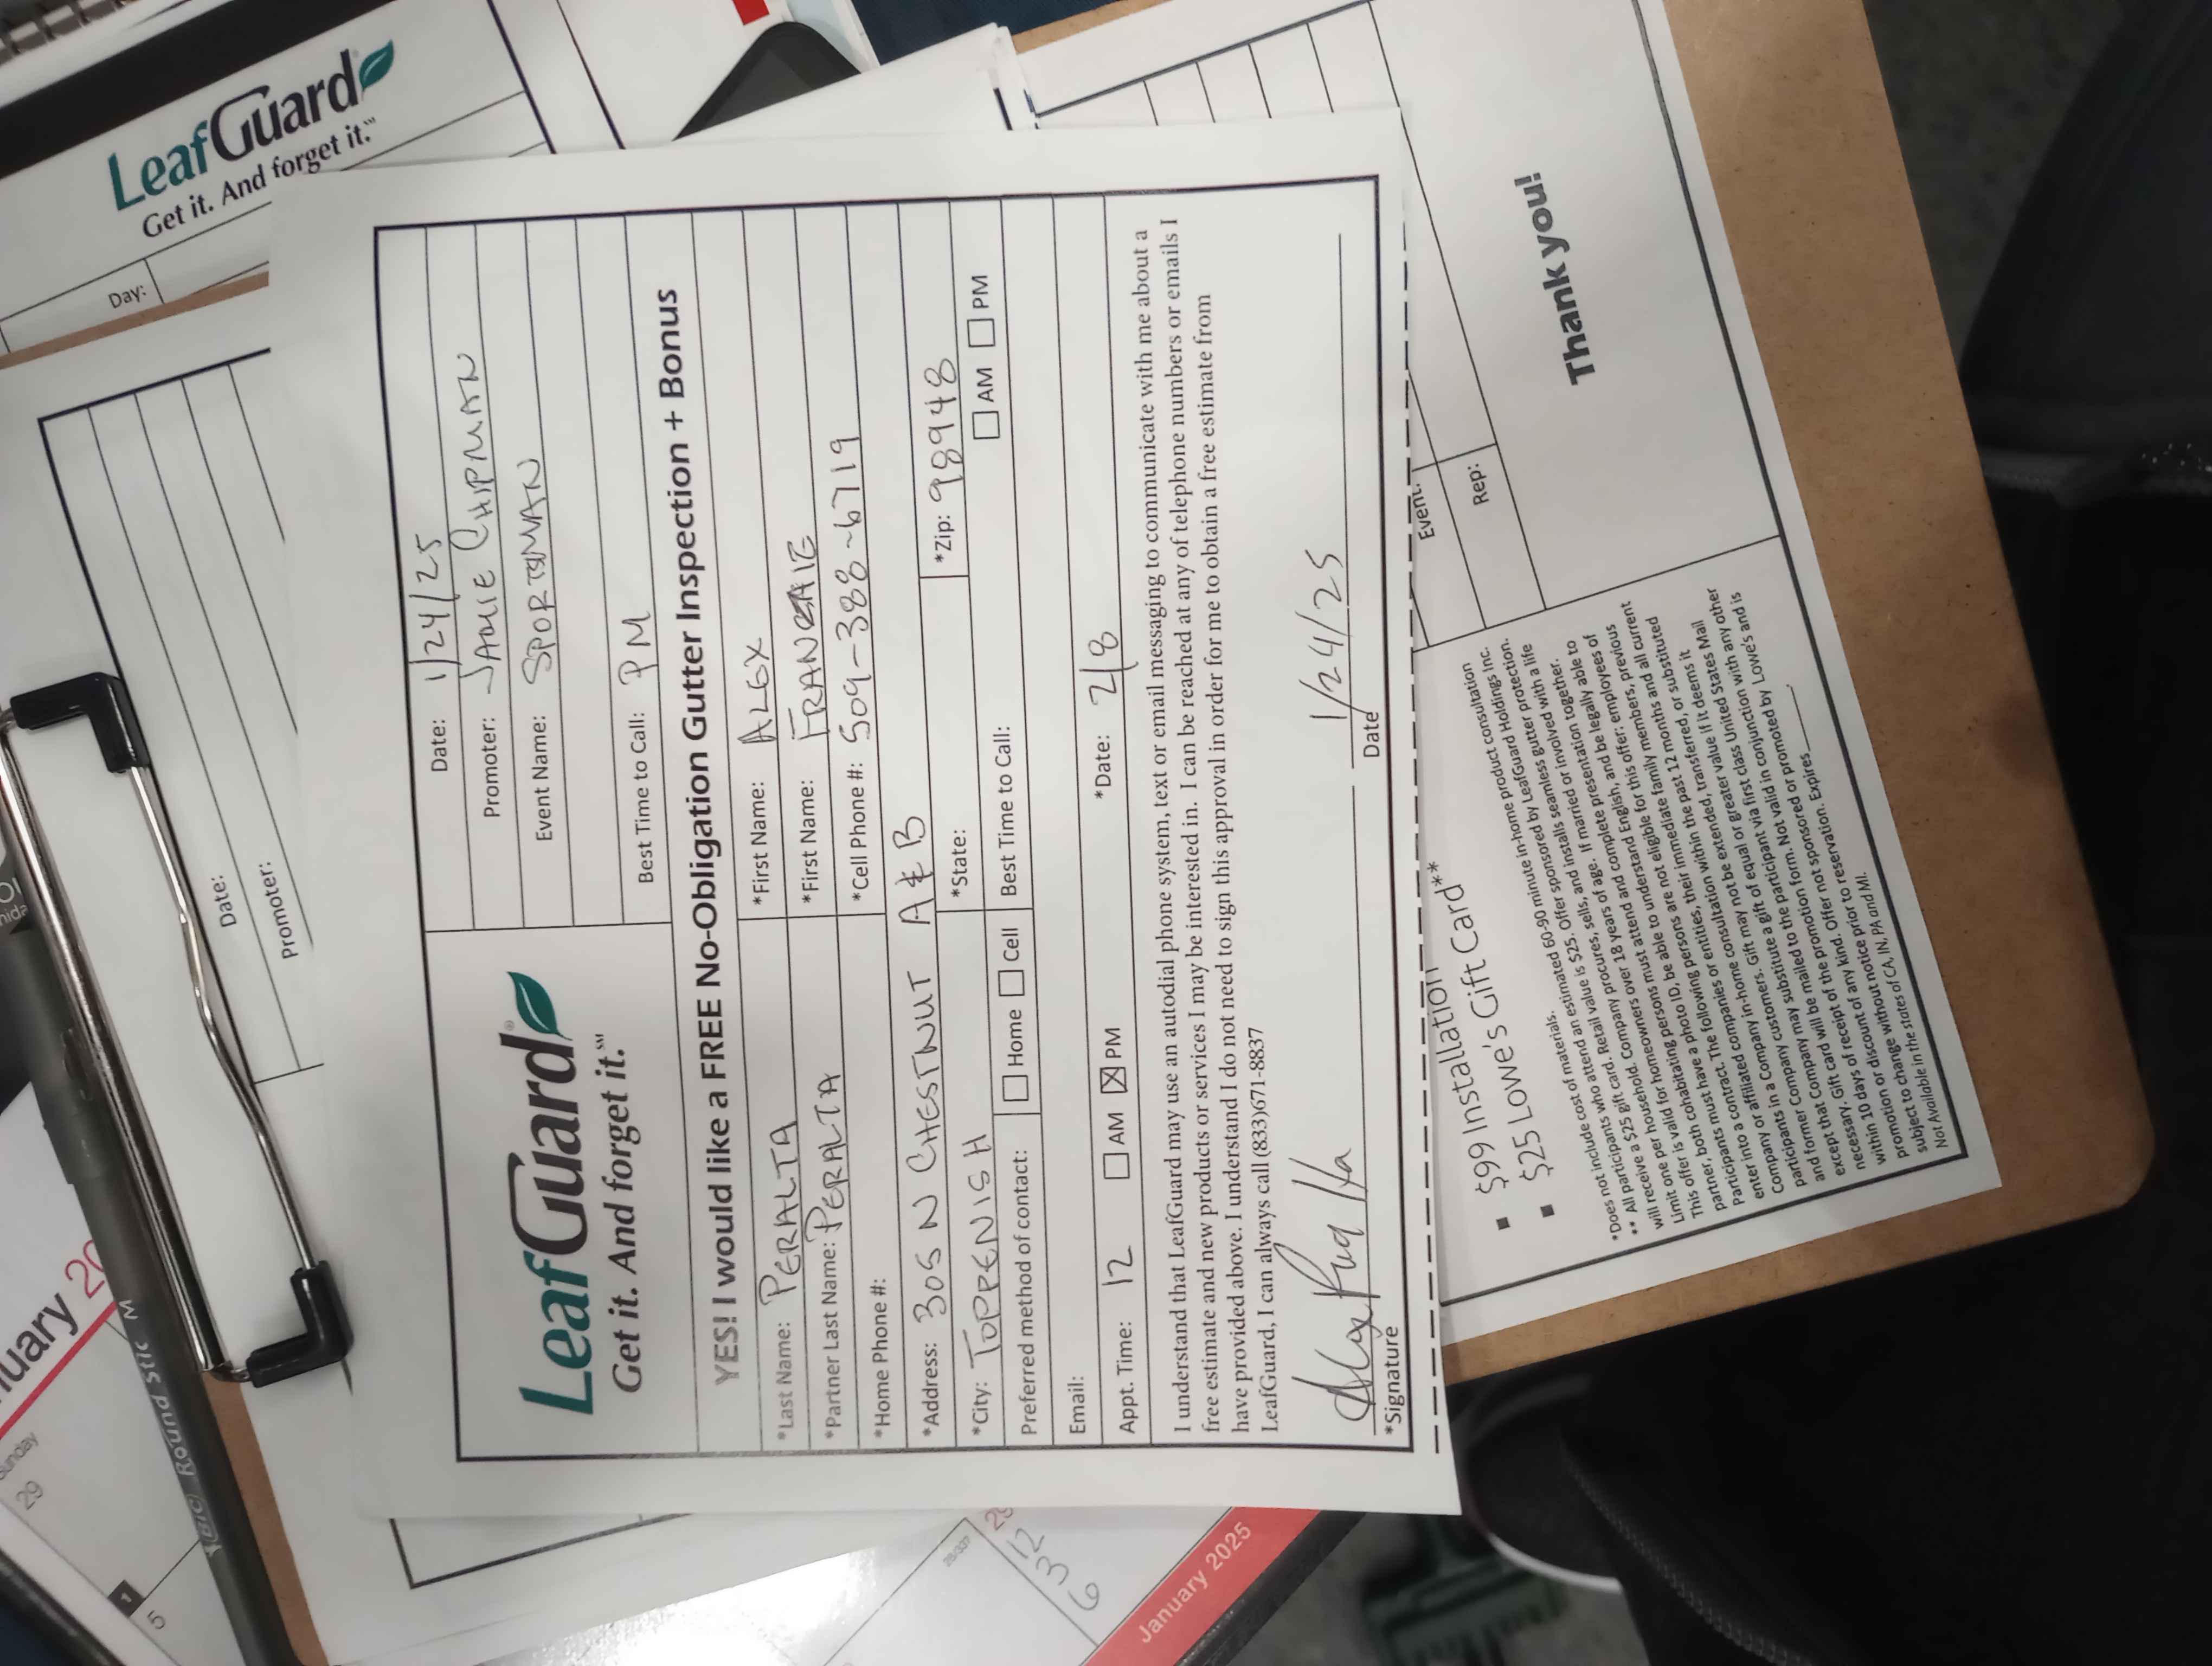 nuary 20
Sunday
29
1
5
BIC Round Stic M
Date:
Promoter:
Day:
LeafGuard
Get it. And forget it.℠
LeafGuard®
Get it. And forget it.℠
Date: 1/24/25
Promoter: JAMIE CHIPMAN
Event Name: SPORTSMAN
Best Time to Call: PM
YES! I would like a FREE No-Obligation Gutter Inspection + Bonus
*Last Name: PERALTA *First Name: ALEX
*Partner Last Name: PERALTA *First Name:
*Home Phone #: *Cell Phone #: 509-388-6719
*Address: 305 N CHESTNUT A & B
*City: TOPPENISH *State: *Zip: 98948
Preferred method of contact: Home Cell Best Time to Call: AM PM
Email:
Appt. Time: 12 AM PM *Date: 2/8
I understand that LeafGuard may use an autodial phone system, text or email messaging to communicate with me about a
free estimate and new products or services I may be interested in. I can be reached at any of telephone numbers or emails I
have provided above. I understand I do not need to sign this approval in order for me to obtain a free estimate from
LeafGuard, I can always call (833)671-8837
Alex Peralta 1/24/25
*Signature Date
12
3
6
January 2025
$99 Installation
$25 Lowe's Gift Card**
*Does not include cost of materials.
** All participants who attend an estimated 60-90 minute in-home product consultation
will receive a $25 gift card. Retail value is $25. Offer sponsored by LeafGuard Holdings Inc.
Limit one per household. Company procures, sells, and installs seamless gutter protection.
This offer is valid for homeowners over 18 years of age. If married or involved with a life
partner, both cohabitating persons must attend and complete presentation together.
Participants must have a photo ID, be able to understand English, and be legally able to
enter into a contract. The following persons are not eligible for this offer: employees of
Company or affiliated companies or entities, their immediate family members, previous
participants in a Company in-home consultation within the past 12 months and all current
and former Company customers. Gift may not be extended, transferred, or substituted
except that Company may substitute a gift of equal or greater value if it deems it
necessary. Gift card will be mailed to the participant via first class United States Mail
within 10 days of receipt of the promotion form. Not valid in conjunction with any other
promotion or discount of any kind. Offer not sponsored or promoted by Lowe's and is
subject to change without notice prior to reservation. Expires
Not Available in the states of CA, IN, PA and MI.
Event:
Rep:
Thank you!